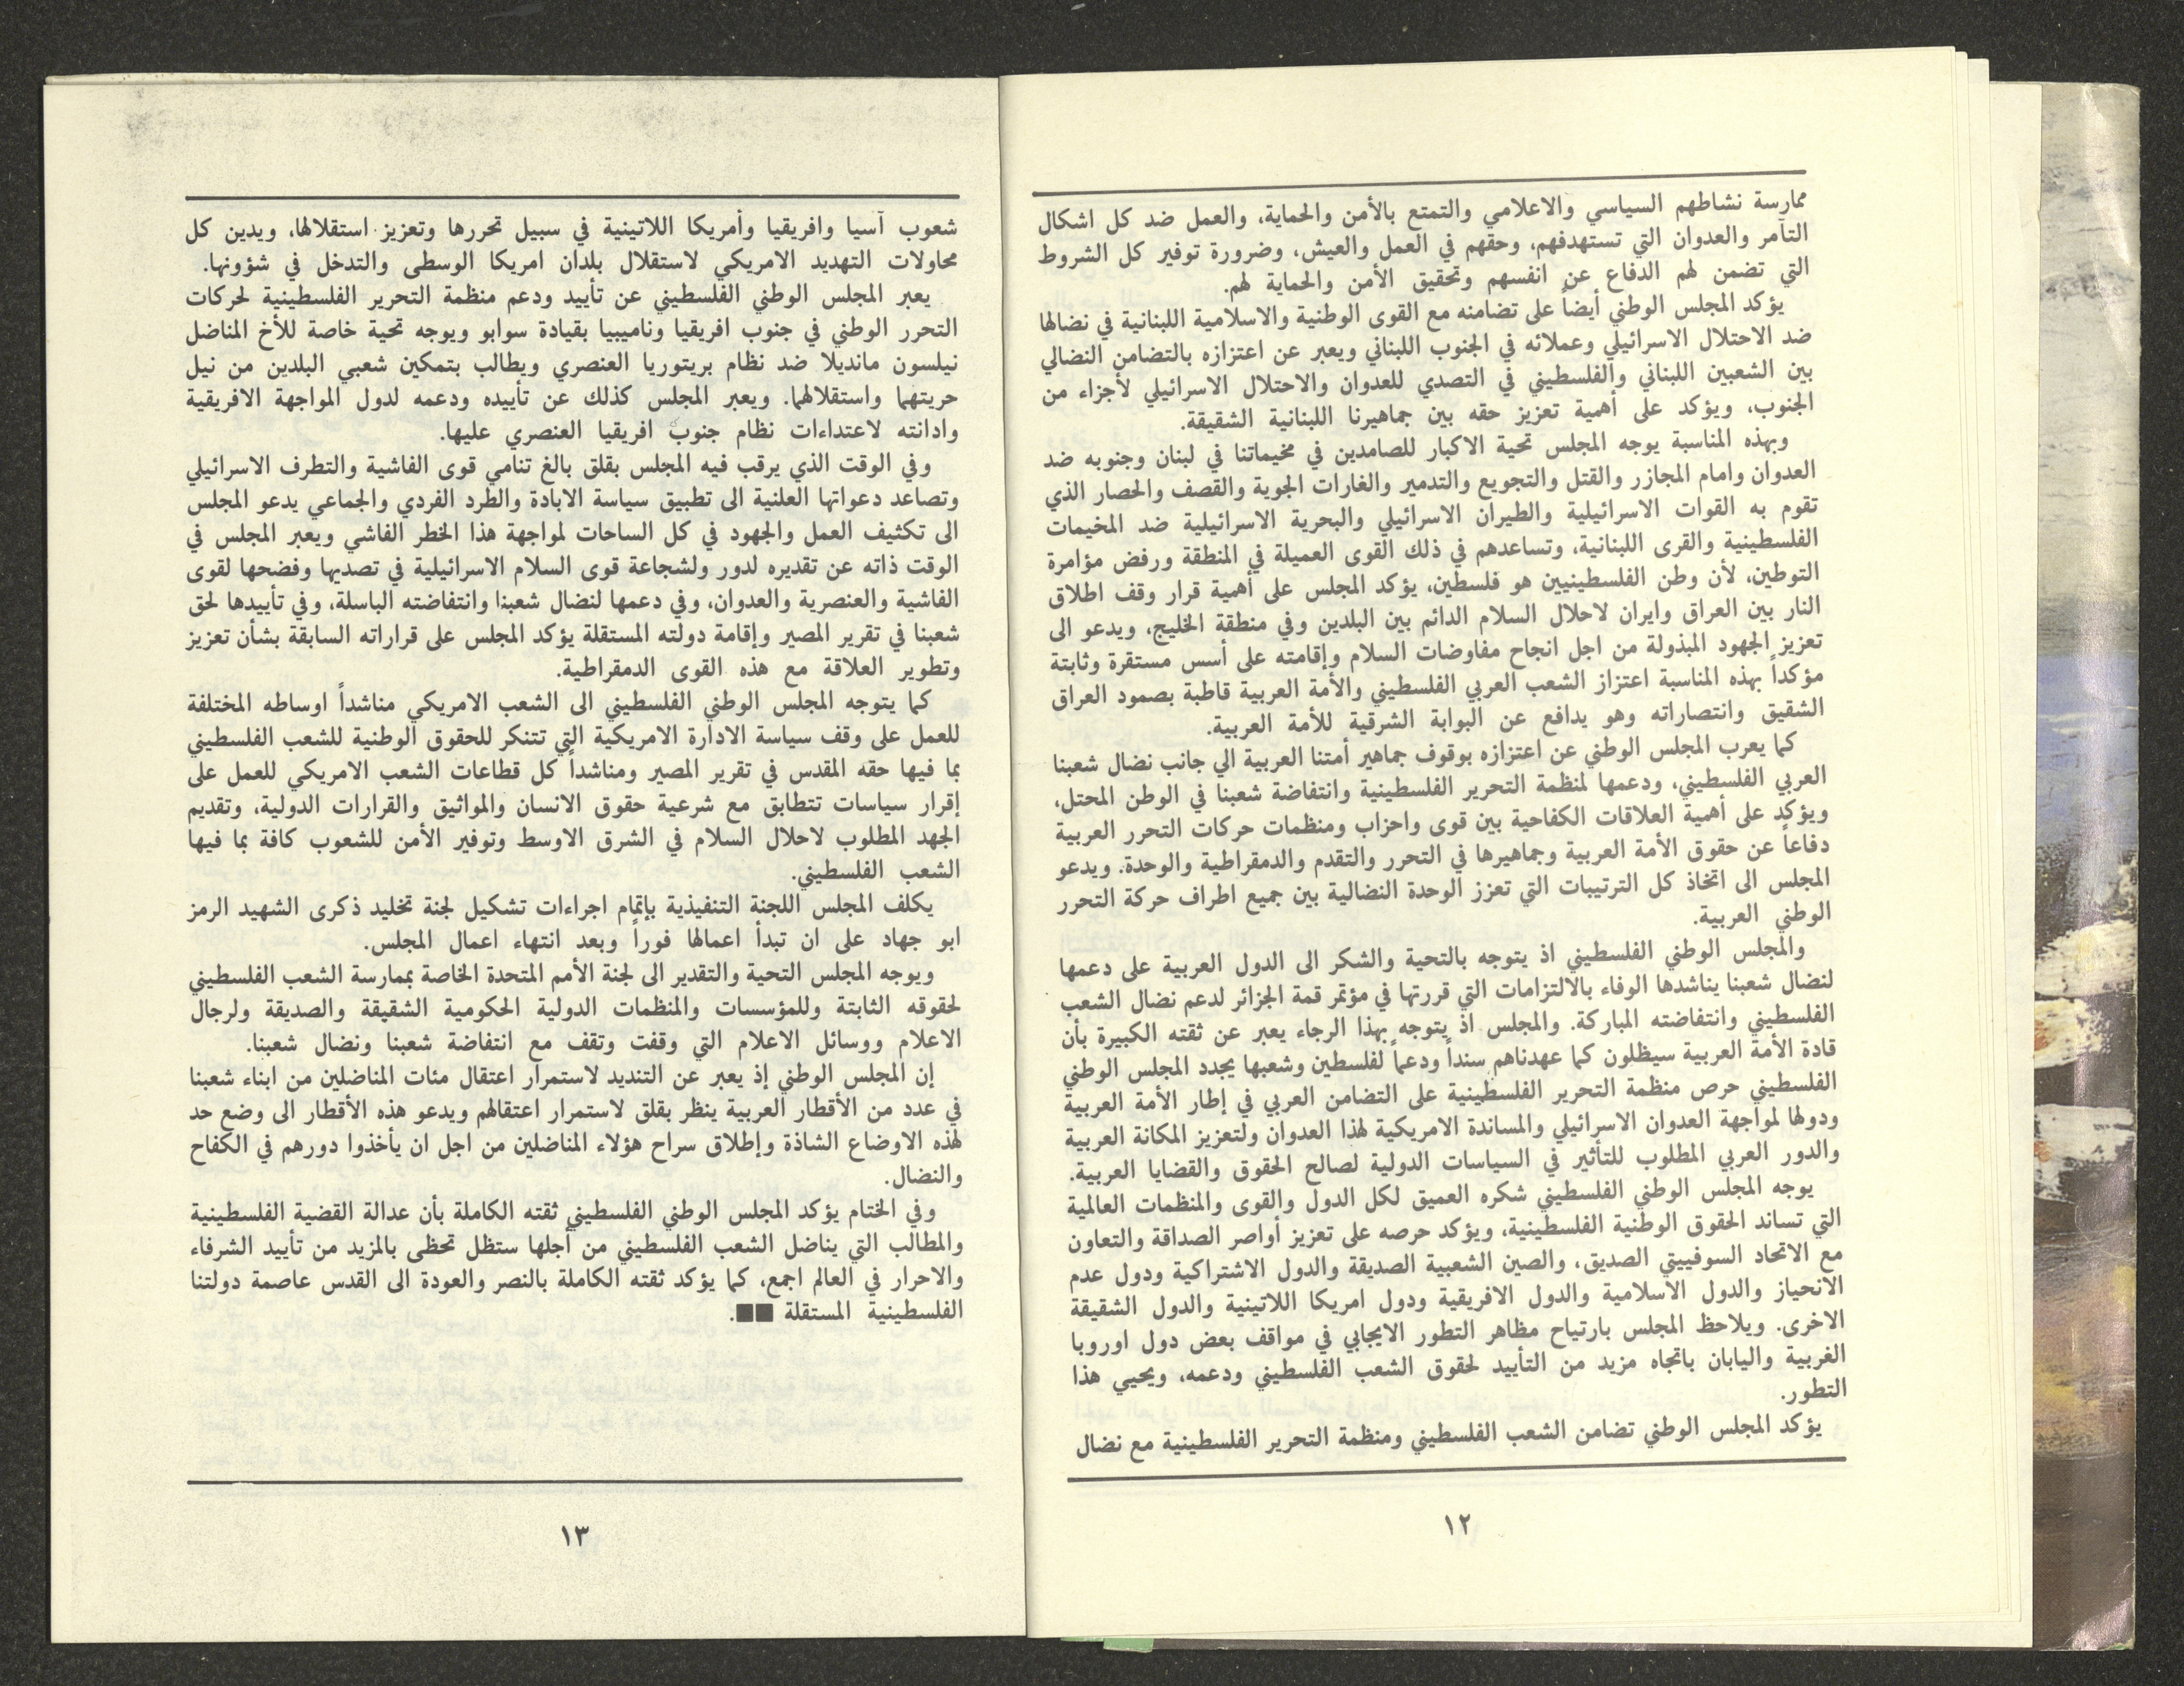 ممارسة نشاطهم السياسي والاعلامي والتمتع بالأمن والحماية، والعمل ضد كل اشكال
التآمر والعدوان التي تستهدفهم، وحقهم في العمل والعيش، وضرورة توفير كل الشروط
التي تضمن لهم الدفاع عن انفسهم وتحقيق الأمن والحماية لهم.
يؤكد المجلس الوطني أيضاً على تضامنه مع القوى الوطنية والاسلامية اللبنانية في نضالها
ضد الاحتلال الاسرائيلي وعملائه في الجنوب اللبناني ويعبر عن اعتزازه بالتضامن النضالي
بين الشعبين اللبناني والفلسطيني في التصدي للعدوان والاحتلال الاسرائيلي لأجزاء من
الجنوب، ويؤكد على أهمية تعزيز حقه بين جماهيرنا اللبنانية الشقيقة.
وبهذه المناسبة يوجه المجلس تحية الاكبار للصامدين في مخيماتنا في لبنان وجنوبه ضد
العدوان وامام المجازر والقتل والتجويع والتدمير والغارات الجوية والقصف والحصار الذي
تقوم به القوات الاسرائيلية والطيران الاسرائيلي والبحرية الاسرائيلية ضد المخيمات
الفلسطينية والقرى اللبنانية، وتساعدهم في ذلك القوى العميلة في المنطقة ورفض مؤامرة
التوطين، لأن وطن الفلسطينيين هو فلسطين، يؤكد المجلس على أهمية قرار وقف اطلاق
النار بين العراق وايران لاحلال السلام الدائم بين البلدين وفي منطقة الخليج، ويدعو الى
تعزيز الجهود المبذولة من اجل انجاح مفاوضات السلام وإقامته على أسس مستقرة وثابتة
مؤكداً بهذه المناسبة اعتزاز الشعب العربي الفلسطيني والأمة العربية قاطبة بصمود العراق
الشقيق وانتصاراته وهو يدافع عن البوابة الشرقية للأمة العربية.
كما يعرب المجلس الوطني عن اعتزازه بوقوف جماهير أمتنا العربية الي جانب نضال شعبنا
العربي الفلسطيني، ودعمها لمنظمة التحرير الفلسطينية وانتفاضة شعبنا في الوطن المحتل،
ويؤكد على أهمية العلاقات الكفاحية بين قوى واحزاب ومنظمات حركات التحرر العربية
دفاعاً عن حقوق الأمة العربية وجماهيرها في التحرر والتقدم والدمقراطية والوحدة. ويدعو
المجلس الى اتخاذ كل الترتيبات التي تعزز الوحدة النضالية بين جميع اطراف حركة التحرر
الوطني العربية.
والمجلس الوطني الفلسطيني اذ يتوجه بالتحية والشكر الى الدول العربية على دعمها
لنضال شعبنا يناشدها الوفاء بالالتزامات التي قررتها في مؤتمر قمة الجزائر لدعم نضال الشعب
الفلسطيني وانتفاضته المباركة. والمجلس اذ يتوجه بهذا الرجاء يعبر عن ثقته الكبيرة بأن
قادة الأمة العربية سيظلون كما عهدناهم سنداً ودعماً لفلسطين وشعبها يجدد المجلس الوطني
الفلسطيني حرص منظمة التحرير الفلسطينية على التضامن العربي في إطار الأمة العربية
ودولها لمواجهة العدوان الاسرائيلي والمساندة الامريكية لهذا العدوان ولتعزيز المكانة العربية
والدور العربي المطلوب للتأثير في السياسات الدولية لصالح الحقوق والقضايا العربية.
يوجه المجلس الوطني الفلسطيني شكره العميق لكل الدول والقوى والمنظمات العالمية
التي تساند الحقوق الوطنية الفلسطينية، ويؤكد حرصه على تعزيز أواصر الصداقة والتعاون
مع الاتحاد السوفييتي الصديق، والصين الشعبية الصديقة والدول الاشتراكية ودول عدم
الانحياز والدول الاسلامية والدول الافريقية ودول امريكا اللاتينية والدول الشقيقة
الاخرى. ويلاحظ المجلس بارتياح مظاهر التطور الايجابي في مواقف بعض دول اوروبا
الغربية واليابان باتجاه مزيد من التأييد لحقوق الشعب الفلسطيني ودعمه، ويحيي هذا
التطور.
يؤكد المجلس الوطني تضامن الشعب الفلسطيني ومنظمة التحرير الفلسطينية مع نضال
١٢
شعوب آسيا وافريقيا وأمريكا اللاتينية في سبيل تحررها وتعزيز استقلالها، ويدين كل
محاولات التهديد الامريكي لاستقلال بلدان امريكا الوسطى والتدخل في شؤونها.
يعبر المجلس الوطني الفلسطيني عن تأييد ودعم منظمة التحرير الفلسطينية لحركات
التحرر الوطني في جنوب افريقيا وناميبيا بقيادة سوابو ويوجه تحية خاصة للأخ المناضل
نيلسون مانديلا ضد نظام بريتوريا العنصري ويطالب بتمكين شعبي البلدين من نيل
حريتهما واستقلالهما. ويعبر المجلس كذلك عن تأييده ودعمه لدول المواجهة الافريقية
وادانته لاعتداءات نظام جنوب افريقيا العنصري عليها.
وفي الوقت الذي يرقب فيه المجلس بقلق بالغ تنامي قوى الفاشية والتطرف الاسرائيلي
وتصاعد دعواتها العلنية الى تطبيق سياسة الابادة والطرد الفردي والجماعي يدعو المجلس
الى تكثيف العمل والجهود في كل الساحات لمواجهة هذا الخطر الفاشي ويعبر المجلس في
الوقت ذاته عن تقديره لدور ولشجاعة قوى السلام الاسرائيلية في تصديها وفضحها لقوى
الفاشية والعنصرية والعدوان، وفي دعمها لنضال شعبنا وانتفاضته الباسلة، وفي تأييدها لحق
شعبنا في تقرير المصير وإقامة دولته المستقلة يؤكد المجلس على قراراته السابقة بشأن تعزيز
وتطوير العلاقة مع هذه القوى الدمقراطية.
كما يتوجه المجلس الوطني الفلسطيني الى الشعب الامريكي مناشداً اوساطه المختلفة
للعمل على وقف سياسة الادارة الامريكية التي تتنكر للحقوق الوطنية للشعب الفلسطيني
بما فيها حقه المقدس في تقرير المصير ومناشداً كل قطاعات الشعب الامريكي للعمل على
إقرار سياسات تتطابق مع شرعية حقوق الانسان والمواثيق والقرارات الدولية، وتقديم
الجهد المطلوب لاحلال السلام في الشرق الاوسط وتوفير الأمن للشعوب كافة بما فيها
الشعب الفلسطيني.
يكلف المجلس اللجنة التنفيذية بإتمام اجراءات تشكيل لجنة تخليد ذكرى الشهيد الرمز
ابو جهاد على ان تبدأ اعمالها فوراً وبعد انتهاء اعمال المجلس.
ويوجه المجلس التحية والتقدير الى لجنة الأمم المتحدة الخاصة بممارسة الشعب الفلسطيني
لحقوقه الثابتة وللمؤسسات والمنظمات الدولية الحكومية الشقيقة والصديقة ولرجال
الاعلام ووسائل الاعلام التي وقفت وتقف مع انتفاضة شعبنا ونضال شعبنا.
إن المجلس الوطني إذ يعبر عن التنديد لاستمرار اعتقال مئات المناضلين من ابناء شعبنا
في عدد من الأقطار العربية ينظر بقلق لاستمرار اعتقالهم ويدعو هذه الأقطار الى وضع حد
لهذه الاوضاع الشاذة وإطلاق سراح هؤلاء المناضلين من اجل ان يأخذوا دورهم في الكفاح
والنضال.
وفي الختام يؤكد المجلس الوطني الفلسطيني ثقته الكاملة بأن عدالة القضية الفلسطينية
والمطالب التي يناضل الشعب الفلسطيني من أجلها ستظل تحظى بالمزيد من تأييد الشرفاء
والاحرار في العالم اجمع، كما يؤكد ثقته الكاملة بالنصر والعودة الى القدس عاصمة دولتنا
الفلسطينية المستقلة ■■.
١٣